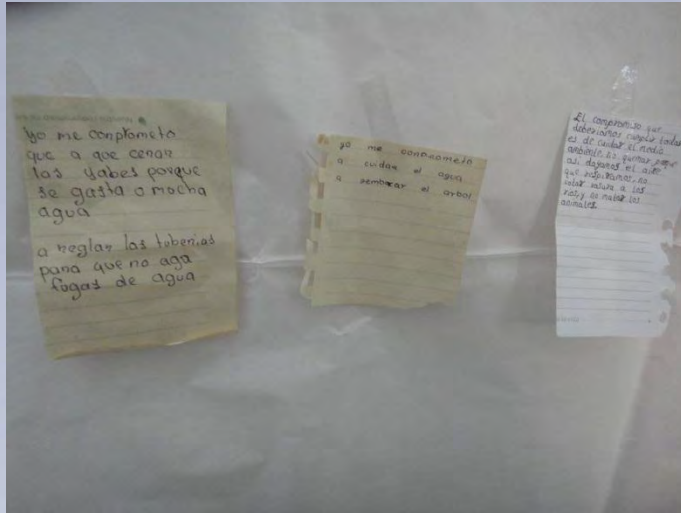 Yo me comprometo
que a que cerrar
las yabes porque
se gasta o mocha
agua
a reglar las tuberias
para que no aga
fugas de agua
yo me comprometo
a cuidar el agua.
a sembrar el arbol
El compromiso que
deberiamos cumplir todos
es de cuidar el medio
ambiente no quemar porque
asi dejamos el aire
que respiramos, no
botar basura a los
rios, y no matar los
animales.